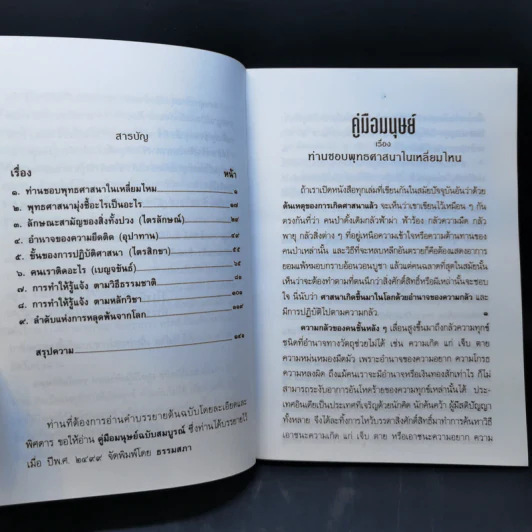 สารบัญ
เรื่อง หน้า
๑. ท่านชอบพุทธศาสนาในเหลี่ยมไหน ๑
๒. พุทธศาสนามุ่งชี้อะไรเป็นอะไร ๑๗
๓. ลักษณะสามัญของสิ่งทั้งปวง (ไตรลักษณ์)
๔. อำนาจของความยึดติด (อุปาทาน)
๕. ขั้นของการปฏิบัติศาสนา (ไตรสิกขา) ๕๕
๖. คนเราติดอะไร (เบญจขันธ์)
๗. การทำให้รู้แจ้ง ตามวิธีธรรมชาติ
๘. การทำให้รู้แจ้ง ตามหลักวิชา
๙. ลำดับแห่งการหลุดพ้นจากโลก
สรุปความ
ท่านที่ต้องการอ่านคำบรรยายต้นฉบับโดยละเอียดและ
พิศดาร ขอให้อ่าน คู่มือมนุษย์ฉบับสมบูรณ์ ซึ่งท่านได้บรรยายไว้
เมื่อ ปีพ.ศ. ๒๔๙๙ จัดพิมพ์โดย ธรรมสภา
คู่มือมนุษย์
เรื่อง
ท่านชอบพุทธศาสนาในเหลี่ยมไหน
ถ้าเราเปิดหนังสือทุกเล่มที่เขียนกันในสมัยปัจจุบันอันว่าด้วย
ต้นเหตุของการเกิดศาสนาแล้ว จะเห็นว่าเขาเขียนไว้เหมือน ๆ กัน
ตรงกันที่ว่า คนป่าดั้งเดิมกลัวฟ้าผ่า ฟ้าร้อง กลัวความมืด กลัว
พายุ กลัวสิ่งต่าง ๆ ที่อยู่เหนือความเข้าใจหรือความต้านทานของ
คนป่าเหล่านั้น และวิธีที่จะหลบหลีกอันตรายก็คือต้องแสดงอาการ
ยอมแพ้หมอบกราบอ้อนวอนบูชา แล้วแต่คนฉลาดที่สุดในสมัยนั้น
เห็นว่าจะต้องทำตามที่ตนคิดว่าสิ่งศักดิ์สิทธิ์หรือผีเหล่านั้นจะชอบ
ใจ นี่นับว่า ศาสนาเกิดขึ้นมาในโลกด้วยอำนาจของความกลัว และ
มีการปฏิบัติไปตามความกลัว. ๑
ความกลัวของคนชั้นหลัง ๆ เลื่อนสูงขึ้นมาถึงกลัวความทุกข์
ชนิดที่อำนาจทางวัตถุช่วยไม่ได้ เช่น ความเกิด แก่ เจ็บ ตาย
ความหม่นหมองมืดมัว เพราะอำนาจของความอยาก ความโกรธ
ความหลงผิด ถึงแม้คนเราจะมีอำนาจหรือเงินทองสักเท่าไร ก็ไม่
สามารถระงับอาการอันโหดร้ายของความทุกข์เหล่านั้นได้ ประ-
เทศอินเดียเป็นประเทศที่เจริญด้วยนักคิด นักค้นคว้า ผู้มีสติปัญญา
ทั้งหลาย จึงได้ละทิ้งการไหว้บรรดาสิ่งศักดิ์สิทธิ์มาทำการค้นหาวิธี
เอาชนะความเกิด แก่ เจ็บ ตาย หรือเอาชนะความอยาก ความ